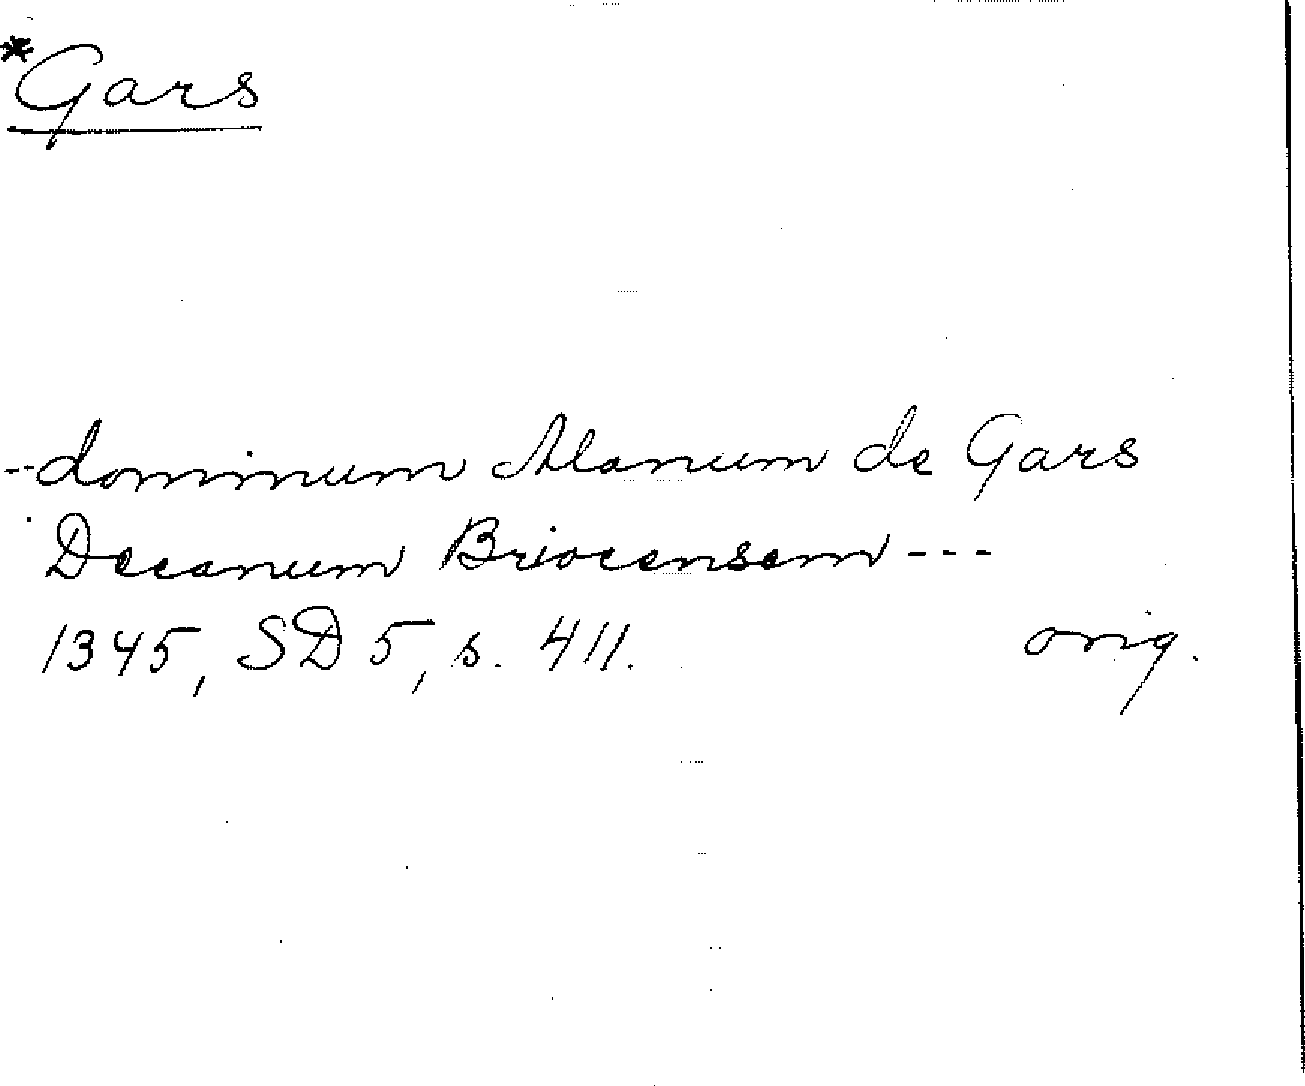 *Gars
--dominum Alanum de Gars
Decanum Briocensem ---
1345, SD 5, s. 411. orig.